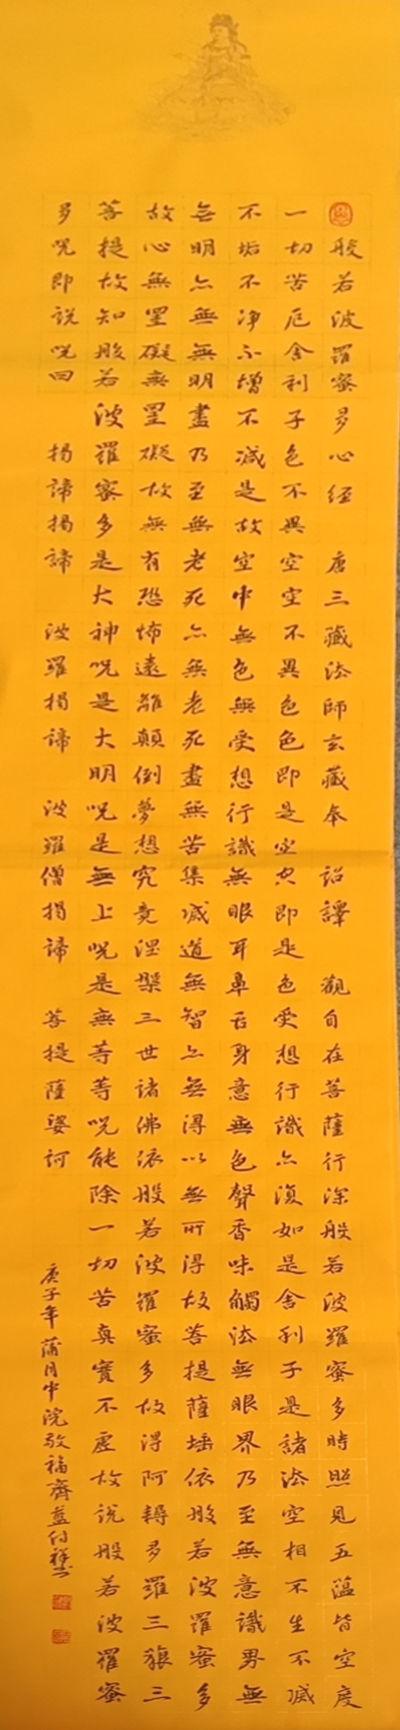 般若波羅蜜多心經 唐三藏法師玄藏奉 詔譯 觀自在菩薩行深般若波羅蜜多時照見五蕰皆空度
一切苦厄舍利子色不異空空不異色色即是空空即是色受想行識亦復如是舍利子是諸法空相不生不滅
不垢不净不增不减是故空中無色無受想行識無眼耳鼻舌身意無色聲香味觸法無眼界乃至無意識界無
無明亦無無明盡乃至無老死亦無老死盡無苦集滅道無智亦無得以無所得故菩提薩埵依般若波羅蜜多
故心無罣礙無罣礙故無有恐怖遠離顛倒夢想究竟涅槃三世諸佛依般若波羅蜜多故得阿耨多羅三藐三
菩提故知般若波羅蜜多是大神咒是大明咒是無上咒是無等等咒能除一切苦真實不虛故說般若波羅蜜
多咒即說咒曰 揭諦揭諦 波羅揭諦 波羅僧揭諦 菩提薩婆訶
庚子年蒲月中浣敬福齋藍付祥